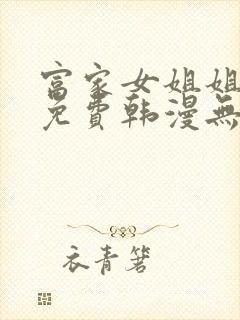 富家女姐姐
免費韩漫無
衣青箬